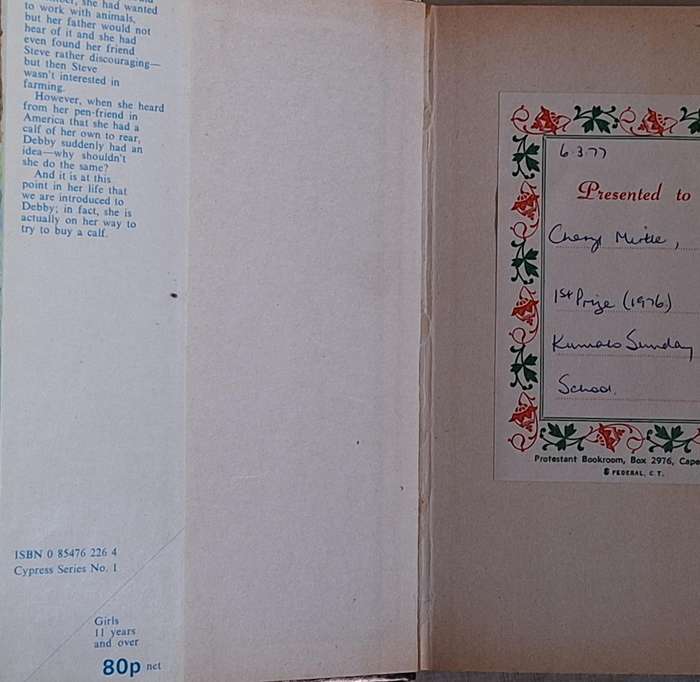 she had wanted
to work with animals,
but her father would not
hear of it and she had
even found her friend
Steve rather discouraging—
but then Steve
wasn't interested in
farming.
However, when she heard
from her pen-friend in
America that she had a
calf of her own to rear,
Debby suddenly had an
idea—why shouldn't
she do the same?
And it is at this
point in her life that
we are introduced to
Debby; in fact, she is
actually on her way to
try to buy a calf.
ISBN 0 85476 226 4
Cypress Series No. 1
Girls
11 years
and over
80p net
6.3.77
Presented to
Cheryl
1st Prize (1976)
Sunday
School.
Protestant Bookroom, Box 2976, Cape
FEDERAL, C.T.